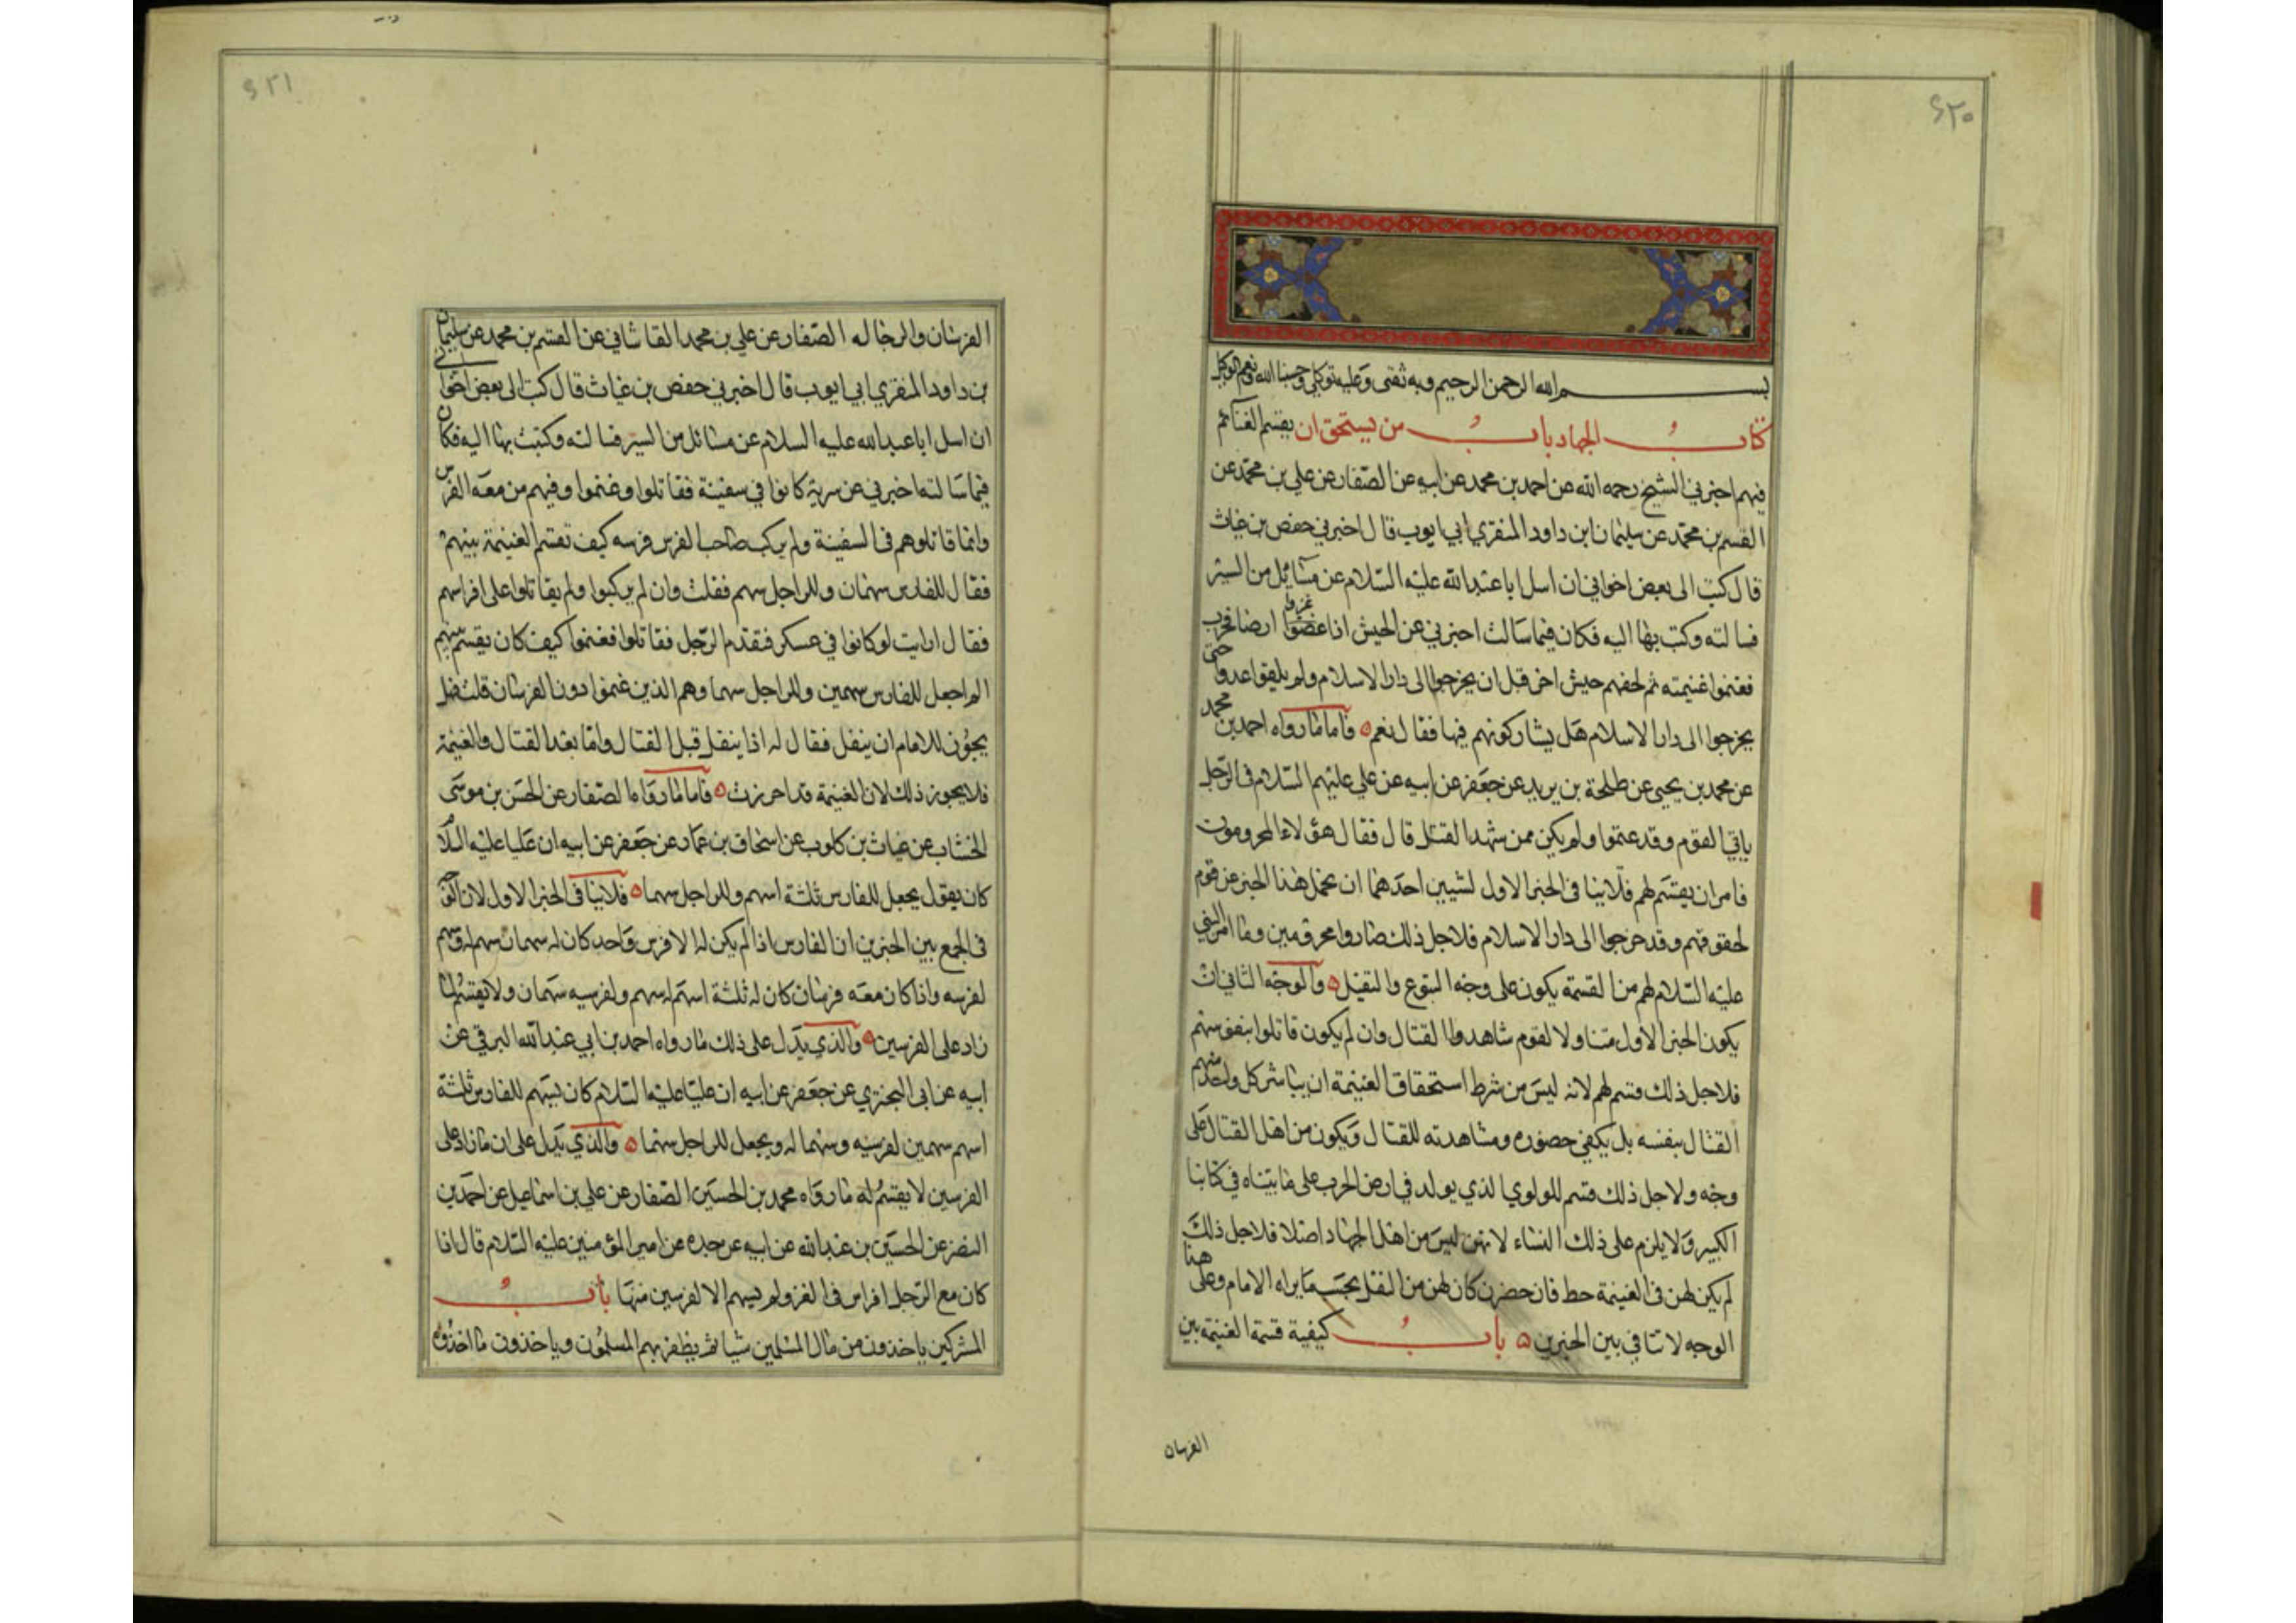 ۶۲۰
بسم الله الرحمن الرحيم وبه ثقتى وعليه توكلي وحسبنا الله ونعم الوكيل
كتاب الجهاد باب من يستحق ان يقسم الغنائم
فيهم اخبرني الشيخ رحمه الله عن احمد بن محمد عن ابيه عن الصفار عن علي بن محمد عن
القسم بن محمد عن سليمان ابن داود المنقري ابي ايوب قال اخبرني حفص بن غياث
قال كتب الى بعض اخواني ان اسل ابا عبد الله عليه السلام عن مسائل من السير
فسالته وكتب بها اليه فكان فيما سالت اخبرني عن الجيش اذا غزوا ارض الحرب
فغنموا غنيمته ثم لحقهم جيش اخر قبل ان يخرجوا الى دار الاسلام ولم يلقوا عدوا حتى
يخرجوا الى دار الاسلام هل يشاركونهم فيها فقال نعم ه فاما ما رواه احمد بن محمد
عن محمد بن يحيى عن طلحة بن يريد عن جعفر عن ابيه عن علي عليهم السلام في الرجل
ياتي القوم وقد غنموا ولم يكن ممن شهد القتال قال فقال هؤلاء المحرومون
فامر ان يقسم لهم فلا ينافى الخبر الاول لشيين احدهما ان نحمل هذا الخبر عن قوم
لحقوهم وقد خرجوا الى دار الاسلام فلاجل ذلك صاروا محرومين وما امر النبي
عليه السلام لهم من القسمة يكون على وجه التبرع والنفيل ه والوجه الثاني ان
يكون الخبر الاول متناولا لقوم شاهدوا القتال وان لم يكون قاتلوا بنفوسهم
فلاجل ذلك قسم لهم لانه ليس من شرط استحقاق الغنيمة ان يباشر كل واحد منهم
القتال بنفسه بل يكفي حضوره ومشاهدته للقتال ويكون من اهل القتال على
وجه ولاجل ذلك قسم للولوي الذي يولد في ارض الحرب على ما بيناه في كتابنا
الكبير ولا يلزم على ذلك النساء لانهن ليس من اهل الجهاد اصلا فلاجل ذلك
لم يكن لهن في الغنيمة حظ فان حضرن كان لهن من النفل بحسب ما يراه الامام وعلى هذا
الوجه لا تنافي بين الخبرين ه باب كيفية قسمة الغنيمة بين
الفرسان
۶۲۱
الفرسان والرجاله الصفار عن علي بن محمد القاشاني عن القسم بن محمد عن سليمان
بن داود المنقري ابي ايوب قال اخبرني حفص بن غياث قال كتب الى بعض اخواني
ان اسل ابا عبد الله عليه السلام عن مسائل من السير فسالته وكتبت بها اليه فكان
فيما سالته اخبرني عن سرية كانوا في سفينة فقاتلوا وغنموا وفيهم من معه الفرس
وانما قاتلوهم في السفينة ولم يركب صاحب الفرس فرسه كيف تقسم الغنيمة بينهم
فقال للفارس سهمان وللراجل سهم فقلت وان لم يركبوا ولم يقاتلوا على افراسهم
فقال ارايت لو كانوا في عسكر فتقدم الرجل فقاتلوا فغنموا كيف كان يقسم بينهم
الم اجعل للفارس سهمين وللراجل سهما وهم الذين غنموا دون الفرسان قلت فهل
يجوز للامام ان ينفل فقال له اذا ينفل قبل القتال واما بعد القتال والغنيمة
فلا يجوز ذلك لان الغنيمة قد احرزت ه فاما ما رواه الصفار عن الحسن بن موسى
الخشاب عن غياث بن كلوب عن اسحاق بن عمار عن جعفر عن ابيه ان عليا عليه السلا
كان يقول يجعل للفارس ثلثة اسهم وللراجل سهما ه فلا ينافى الخبر الاول لان الوجه
في الجمع بين الخبرين ان الفارس اذا لم يكن له الا فرس واحد كان له سهمان سهم له وسهم
لفرسه واذا كان معه فرسان كان له ثلثة اسهم له سهم ولفرسيه سهمان ولا يقسم لما
زاد على الفرسين ه والذي يدل على ذلك ما رواه احمد بن ابي عبد الله البرقي عن
ابيه عن ابي البختري عن جعفر عن ابيه ان عليا عليه السلام كان يسهم للفارس ثلثة
اسهم سهمين لفرسيه وسهما له ويجعل للراجل سهما ه والذي يدل على ان ما زاد على
الفرسين لا يقسم له ما رواه محمد بن الحسين الصفار عن علي بن اسماعيل عن احمد بن
النضر عن الحسين بن عبد الله عن ابيه عن جده عن امير المؤمنين عليه السلام قال اذا
كان مع الرجل افراس في الغزو لم يسهم الا لفرسين منها باب
المشركين ياخذون من مال المسلمين شيا ثم يظفر بهم المسلمون وياخذون ما اخذوه